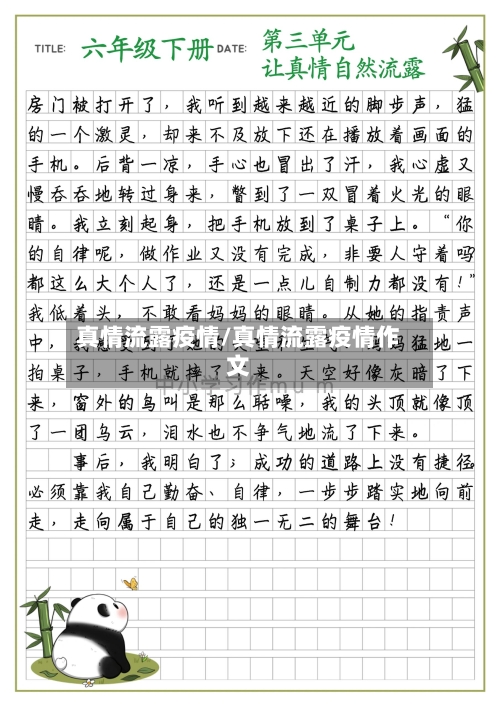 TITLE: 六年级下册 DATE: 第三单元
让真情自然流露
房门被打开了，我听到越来越近的脚步声，猛
的一个激灵，却来不及放下还在播放着画面的
手机。后背一凉，手心也冒出了汗，我心虚又
慢吞吞地转过身来，瞥到了一双冒着火光的眼
睛。我立刻起身，把手机放到了桌子上。“你
的自律呢，做作业又没有完成，非要人守着吗
都这么大个人了，还是一点儿自制力都没有！”
我低着头，不敢看妈妈的眼睛。从她的指责声
真情流露疫情/真情流露疫情作
文
中，猛地一
拍桌子，手机就摔了下来。天空好像灰暗了下
来，窗外的鸟叫是那么聒噪，我的头顶就像顶
了一团乌云，泪水也不争气地流了下来。
事后，我明白了；成功的道路上没有捷径。
必须靠我自己勤奋、自律，一步步踏实地向前
走，走向属于自己的独一无二的舞台！